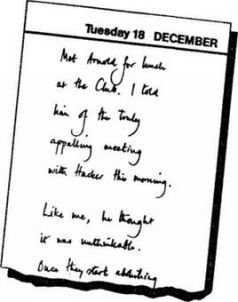 Tuesday 18 DECEMBER
Met Arnold for lunch
at the Club. I told
him of the truly
appalling meeting
with Hacker this morning.
Like me, he thought
it was unthinkable.
Once they start abolishing